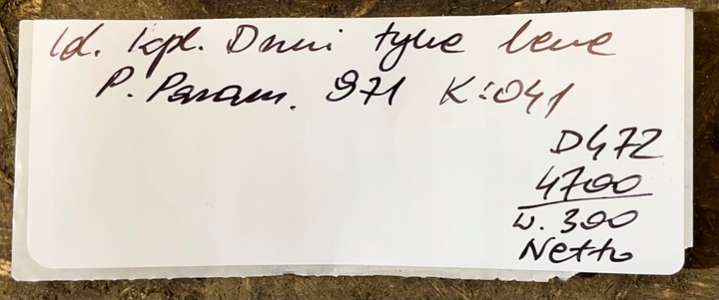 kpl. Drzwi tylne lewe
P. Panam. 971 K:041
D472
4700
w. 300
Netto